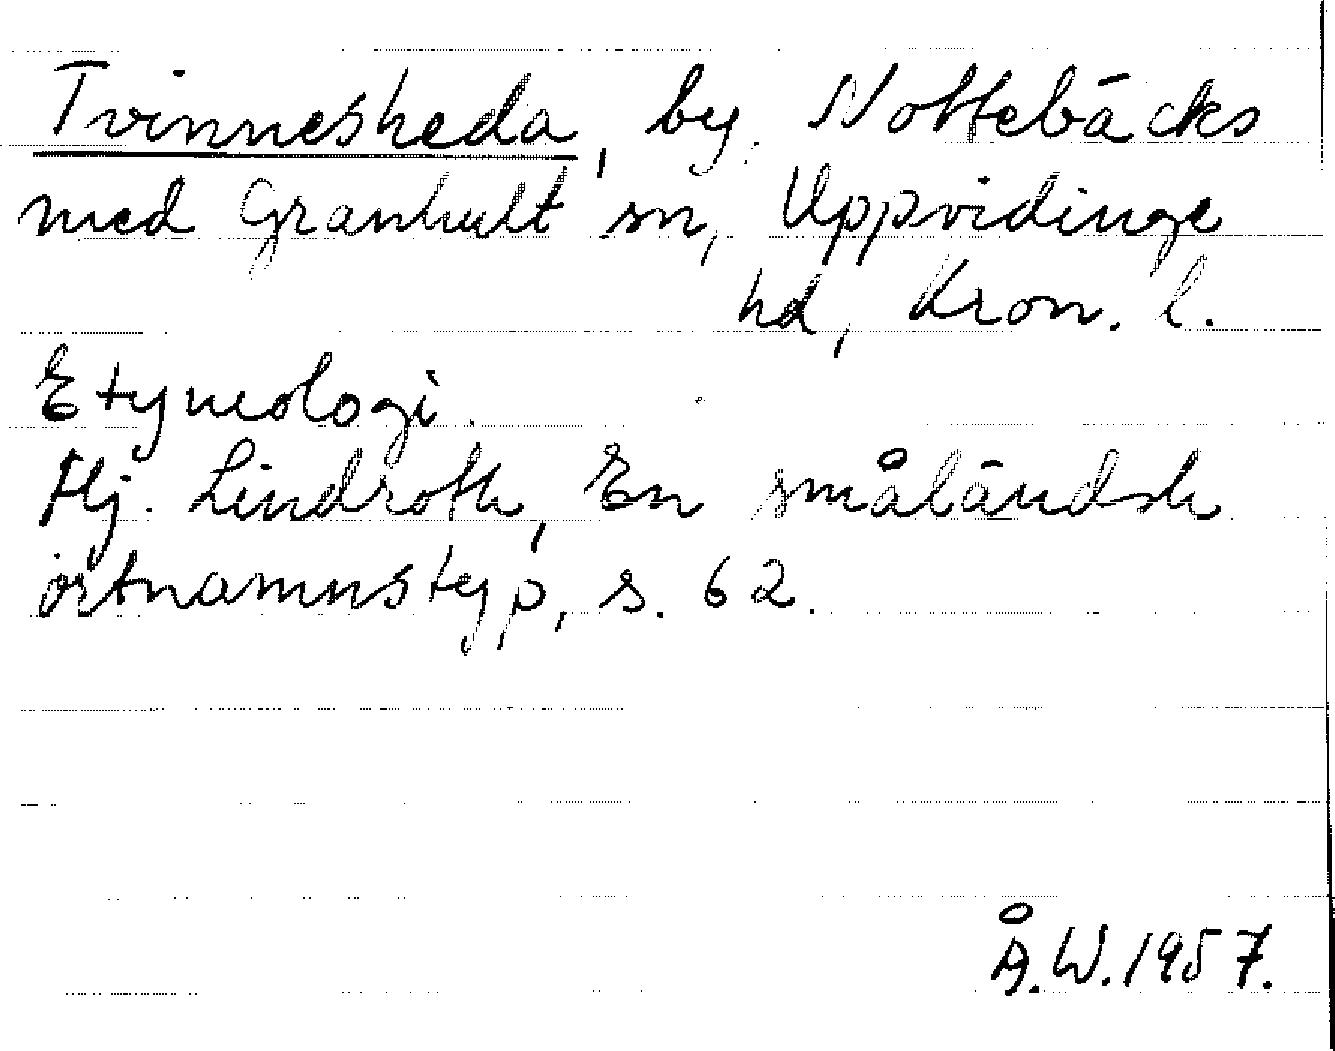 Tvinnesheda, by, Nottebäcks
med Granhult sn, Uppvidinge
hd, Kron. l.
Etymologi.
Hj. Lindroth, En småländsk
ortnamnstyp, s. 62.
Å.W.1957.